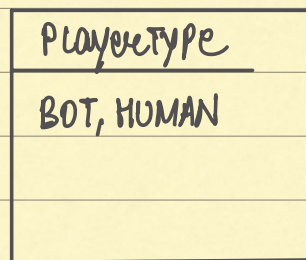 PlayerType
BOT, HUMAN